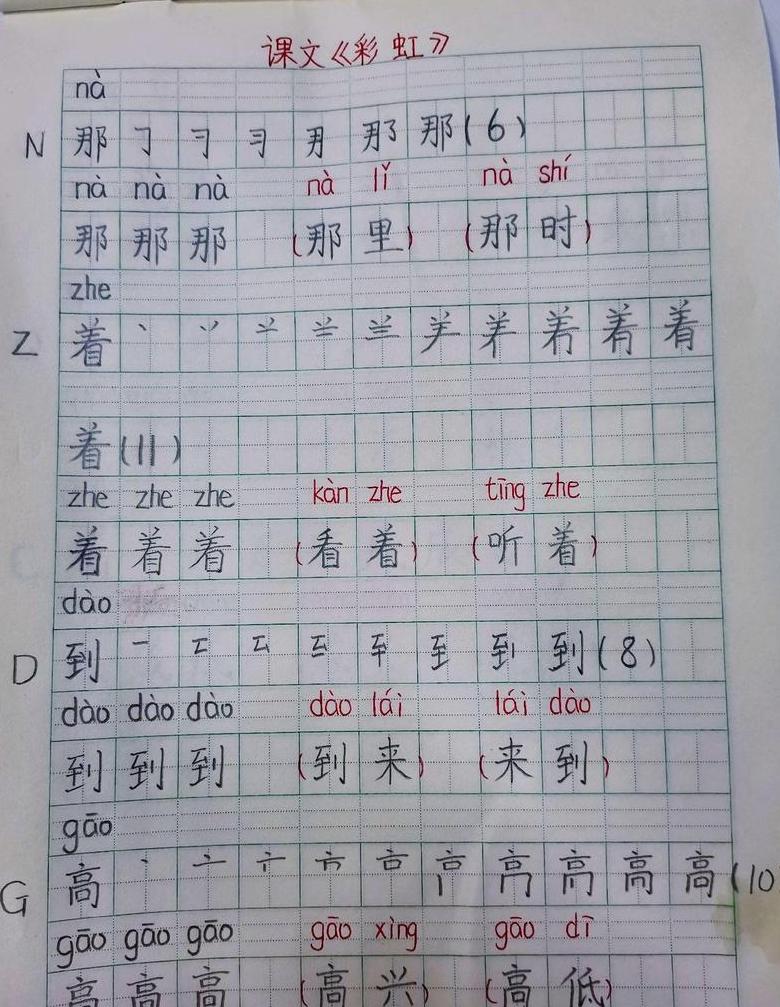 课文《彩虹》
nà
N 那 那(6)
nà nà nà nà lǐ nà shí
那 那 那 (那 里) (那 时)
zhe
Z 着 丶 丷
着(11)
zhe zhe zhe kàn zhe tīng zhe
着 着 着 (看 着) (听 着)
dào
D 到 一 至 到(8)
dào dào dào dào lái lái dào
到 到 到 (到 来) (来 到)
gāo
G 高 丶 亠 高(10
gāo gāo gāo gāo xìng gāo dī
高 高 高 (高 兴) (高 低)